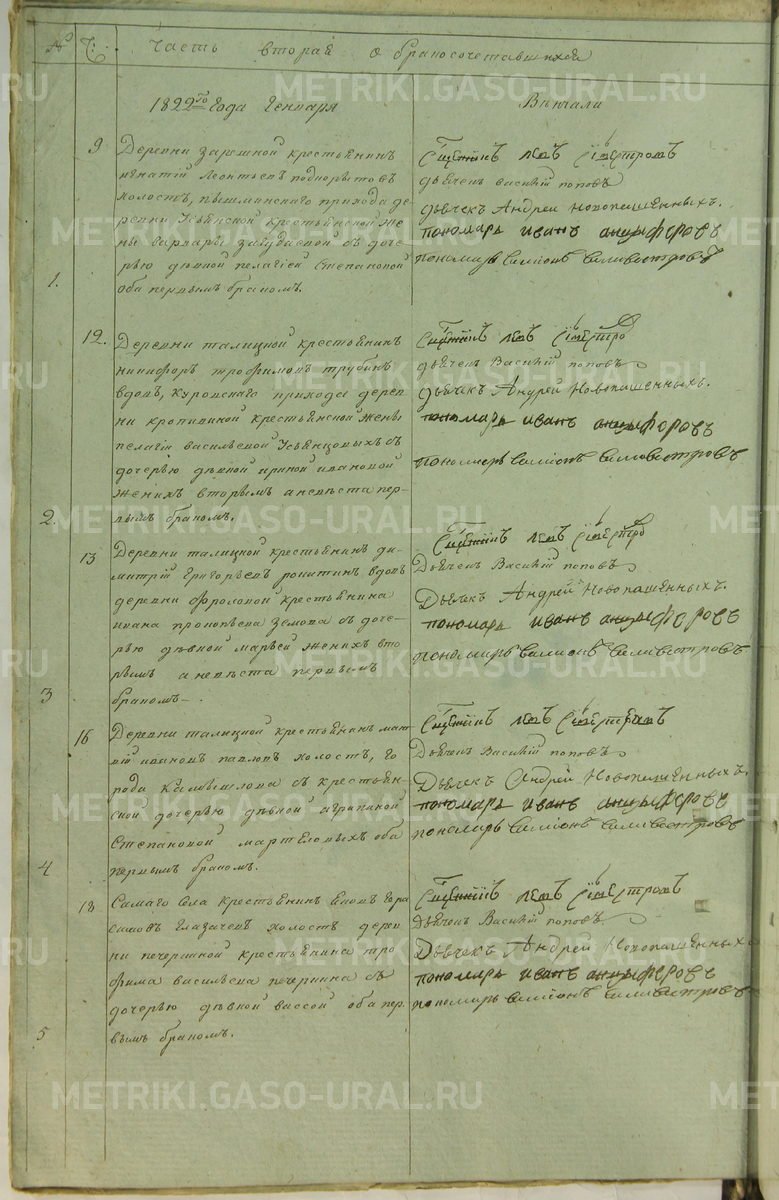 № Ч: Часть вторая о браносочетавшихся
1822го года Генваря
Венчали
9 Деревни зарешной крестьянинъ
игнатий Леонтьев подкорытовъ
холостъ, пышминскаго прихода де-
ревни Усьянской крестьянской же-
ны варвары с доче-
рью девкой пелагией Степановой
1. оба первымъ бракомъ.
дьячекъ Андрей Новопашенныхъ.
пономарь иванъ анцыферовъ
пономарь Симионъ Силивестровъ
12. Деревни талицкой крестьянинъ
никифор трофимов трубинъ
вдовъ, Куровскаго прихода дерев-
ни кропивиной крестьянской жены
пелагии васильевой Усьянцовыхъ съ
дочерью девкой ириной ивановой
женихъ вторымъ а невеста пер-
2. вымъ бракомъ.
Василий поповъ
дьячекъ Андрей Новопашенныхъ.
пономарь иванъ анцыферовъ
пономарь Симионъ Силивестровъ
13 Деревни талицкой крестьянинъ ди-
митрий Григорьевъ вдовъ
деревни фроловой крестьянина
ивана прокопьева земова съ доче-
рью девкой марьей женихъ вто-
рымъ а невеста первымъ
3 бракомъ.
Василий поповъ
Дьячекъ Андрей Новопашенныхъ.
пономарь иванъ анцыферовъ
пономарь Симионъ Силивестровъ
16 Деревни талицкой крестьянинъ мат-
вий ивановъ павловъ холостъ, го-
рода Камышлова съ крестьян-
ской дочерью девкой агрипиной
Степановой мартеловыхъ оба
4 первымъ бракомъ.
Василий поповъ
Дьячекъ Андрей Новопашенныхъ.
пономарь иванъ анцыферовъ
пономарь Симионъ Силивестровъ
18 Самаго села крестьянинъ Гера-
симовъ Глазачевъ холостъ дерев-
ни печеркиной крестьянина тро-
фима васильева печеркина съ
дочерью девкой вассой оба пер-
5 вымъ бракомъ.
Василий поповъ
Дьячекъ Андрей Новопашенныхъ
пономарь иванъ анцыферовъ
пономарь Симионъ Силивестровъ
METRIKI.GASO-URAL.RU